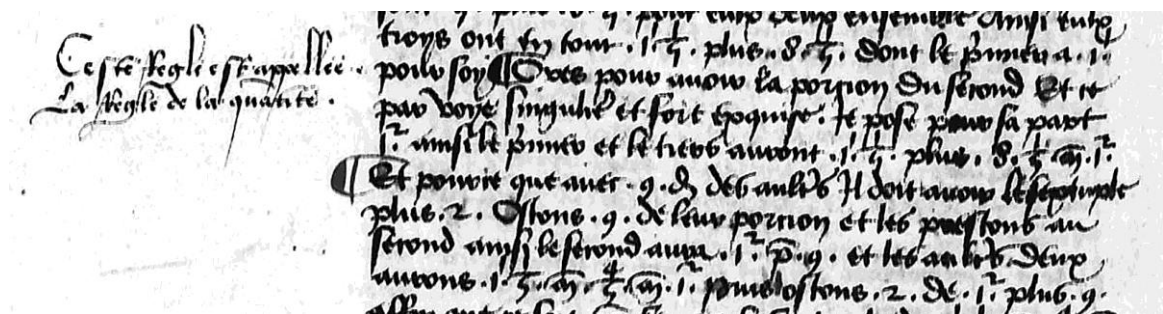 Ceste Regle est appellee
La Regle de la quātite .
troys ont en tout . 1. plus . 8. dont le p̄mier a . 1.
pour soy ¶ Ores pour auoir la porcion du second Et ce
par voye singuliere et fort exquise . Je pose pour sa part
1. ainsi le p̄mier et le tiers auront . 1. plus . 8. m̄. 1.
¶ Et pource que auec . 9. des aultres Il doit auoir le septuple
plus . 2 . Ostons . 9 . de leur porcion et les prestons au
second ainsi le second aura . 1. p̄. 9 . et les aultres deux
aurons . 1. m̄. m̄. 1. puis ostons . 2 . de . 1. plus . 9 .